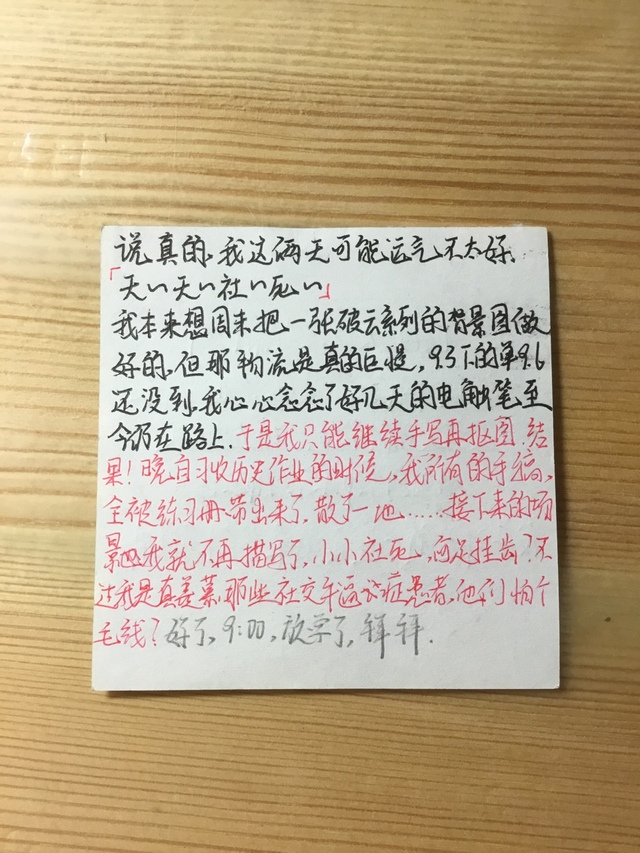 说真的,我这俩天可能运气不太好,
「天い天い社い死い」
我本来想周末把一张破云系列的背景图做
好的,但那物流是真的巨慢,9.3下的单9.6
还没到,我心心念念了好几天的电触笔至
今仍在路上.于是我只能继续手写再抠图.结
果!晚自习收历史作业的时候,我所有的手稿,
全被练习册带出来了,散了一地……接下来的场
景我就不再描写了,小小社死,何足挂齿?不
过我是真羡慕那些社交牛逼症患者,他们怕个
毛线?好了,9:00,放学了,拜拜.